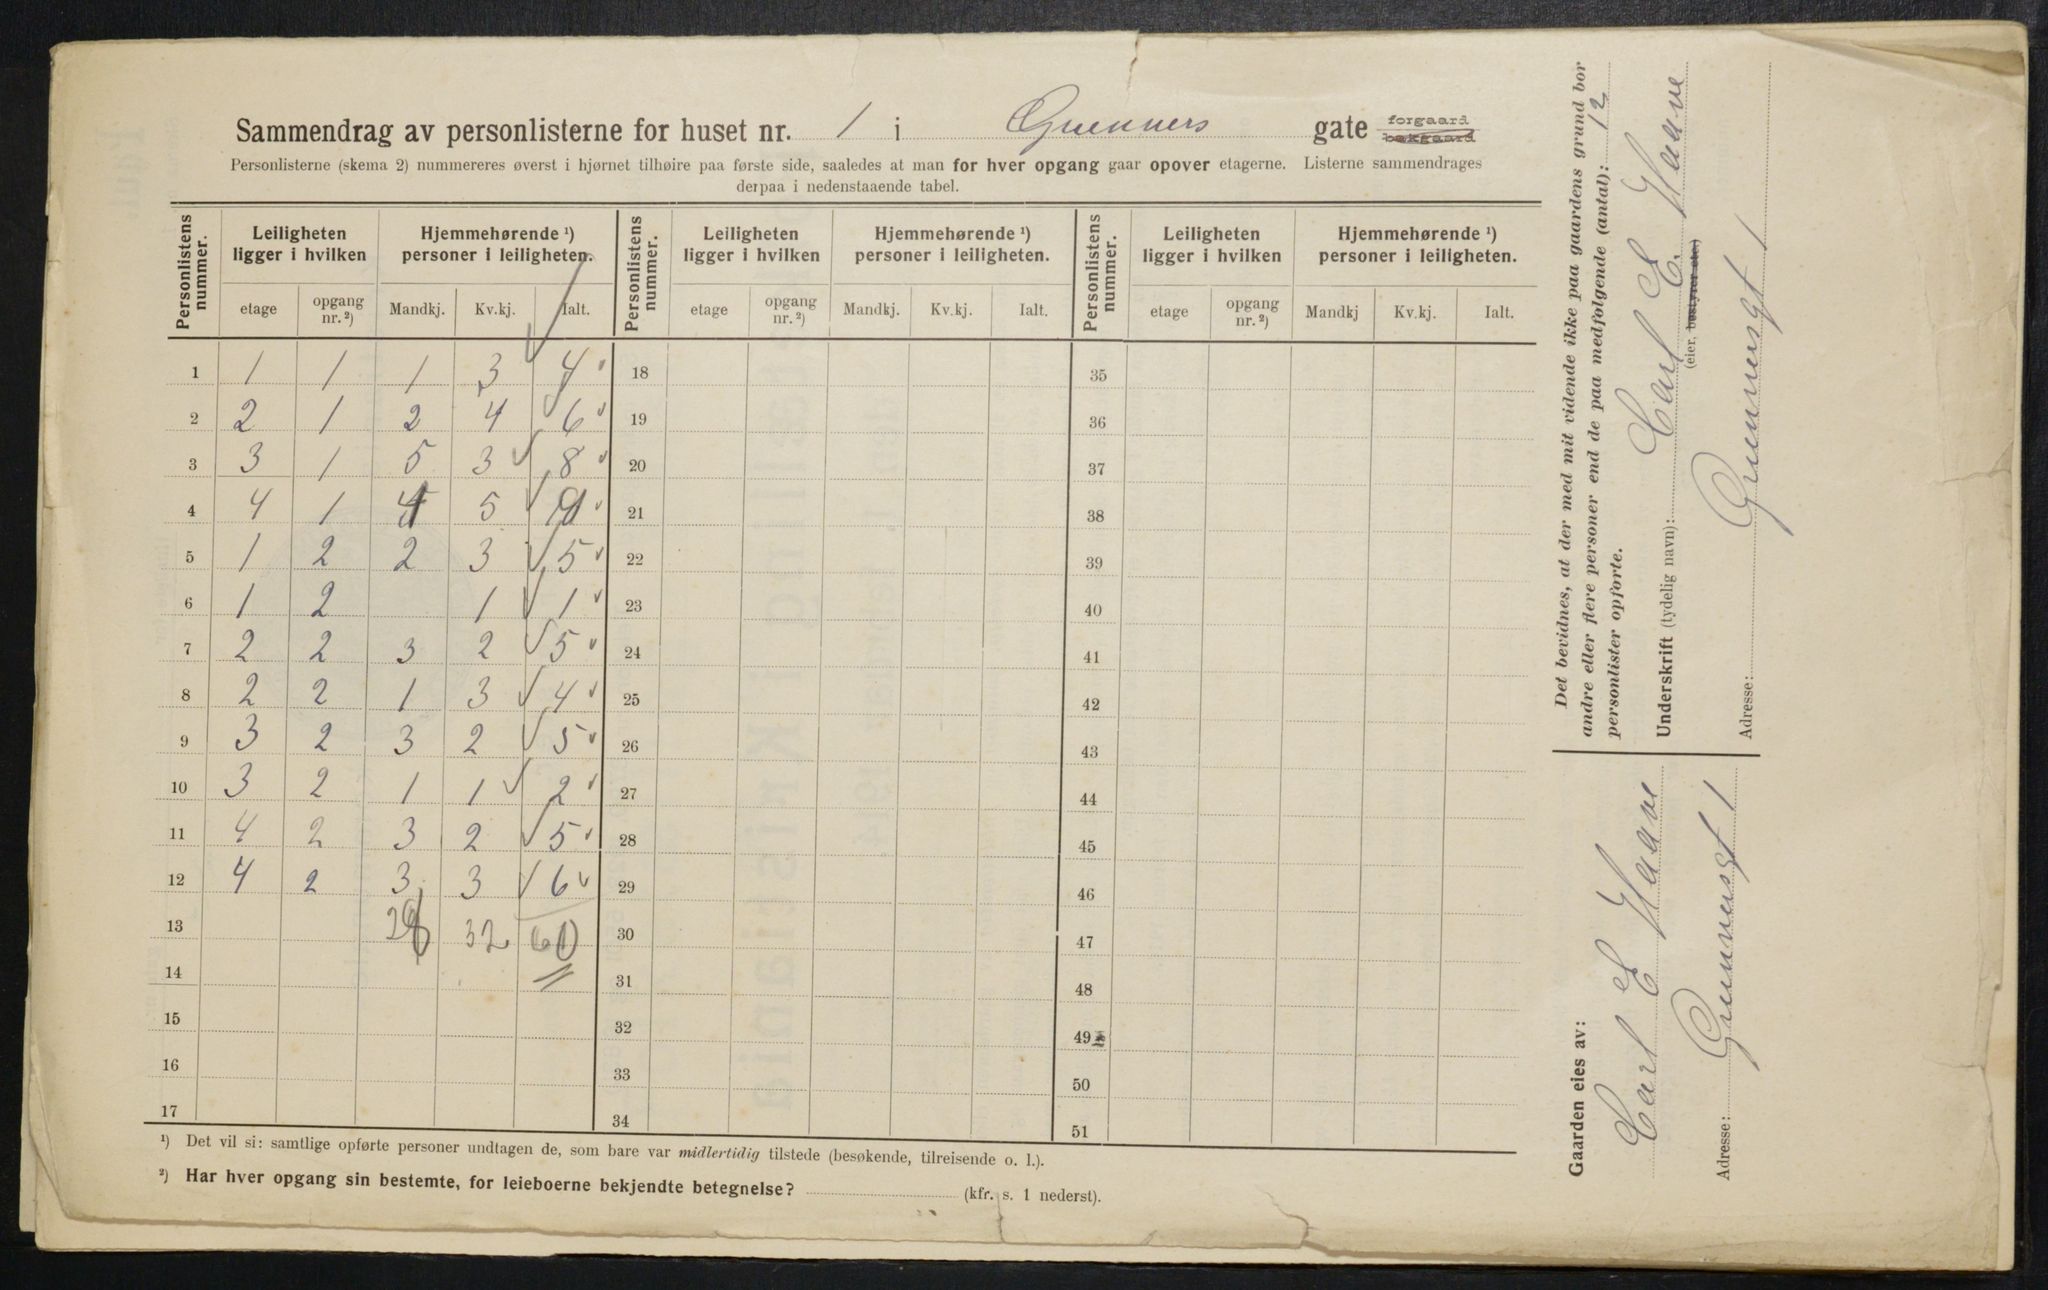 Sammendrag av personlisterne for huset nr. 1 i Gruenners gate forgaard bakgaard
Personlisterne (skema 2) nummereres øverst i hjørnet tilhøire paa første side, saaledes at man for hver opgang gaar opover etagerne. Listerne sammendrages
derpaa i nedenstaaende tabel.
Personlistens nummer. Leiligheten ligger i hvilken Hjemmehørende ¹) personer i leiligheten. Personlistens nummer. Leiligheten ligger i hvilken Hjemmehørende ¹) personer i leiligheten. Personlistens nummer. Leiligheten ligger i hvilken Hjemmehørende ¹) personer i leiligheten.
etage opgang nr.²) Mandkj. Kv.kj. Ialt. etage opgang nr.²) Mandkj. Kv.kj. Ialt. etage opgang nr.²) Mandkj Kv.kj. Ialt.
1 1 1 1 3 4 18 35
2 2 1 2 4 6 19 36
3 3 1 5 3 8 20 37
4 4 1 5 21 38
5 1 2 2 3 5 22 39
6 1 2 1 1 23 40
7 2 2 3 2 5 24 41
8 2 2 1 3 4 25 42
9 3 2 3 2 5 26 43
10 3 2 1 1 2 27 44
11 4 2 3 2 5 28 45
12 4 2 3 3 6 29 46
13 32 30 47
14 31 48
15 32 49
16 33 50
17 34 51
¹) Det vil si: samtlige opførte personer undtagen de, som bare var midlertidig tilstede (besøkende, tilreisende o. l.).
²) Har hver opgang sin bestemte, for leieboerne bekjendte betegnelse? (kfr. s. 1 nederst).
Det bevidnes, at der med mit vidende ikke paa gaardens grund bor
andre eller flere personer end de paa medfølgende (antal): 12
personlister opførte.
Underskrift (tydelig navn): Carl E. Haave
(eier, bestyrer etc.)
Adresse: Gruennersgt 1
Gaarden eies av:
Carl E Haave
Adresse: Gruennersgt 1